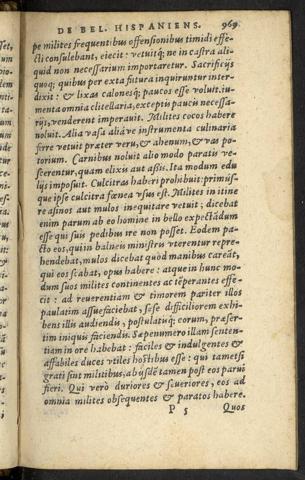 DE BEL. HISPANIENS. 969
pe milites frequentibus offensionibus timidi effe-
cti consulebant, eiecit: vetuitq; ne in castra ali-
quid non necessarium importaretur. Sacrificijs
quoq; quibus per exta futura inquiruntur inter-
dixit: & lixas calonesq; paucos esse voluit. iu-
menta omnia clitellaria, exceptis paucis necessa-
rijs, venderent imperauit. Milites cocos habere
noluit. Alia vasa aliá ve instrumenta culinaria
ferre vetuit præter veru, & ahenum, & vas po-
torium. Carnibus noluit alio modo paratis ve-
scerentur, quam elixis aut assis. Ita modum edu
lijs imposuit. Culcitras haberi prohibuit: primus-
que ipse culcitra fœnea vsus est. Milites in itine
re asinos aut mulos inequitare vetuit; dicebat
enim parum ab eo homine in bello expectãdum
esse qui suis pedibus ire non posset. Eodem pa-
cto eos, qui in balneis ministris vterentur repre-
hendebat, mulos dicebat quòd manibus careãt,
qui eos scabat, opus habere: atque in hunc mo-
dum suos milites continentes ac tẽperantes effe-
cit: ad reuerentiam & timorem pariter illos
paulatim assuefaciebat, sese difficiliorem exhi-
bens illis audiendis, postulatiq; eorum, præser-
tim iniqui faciendis. Sæpenumero illam senten-
tiam in ore habebat: faciles & indulgentes &
affabiles duces vtiles hostibus esse: qui tametsi
grati sint militibus, ab ijsdẽ tamen post eos parui
fieri. Qui verò duriores & seueriores, eos ad
omnia milites obsequentes & paratos habere.
P 5 Quos